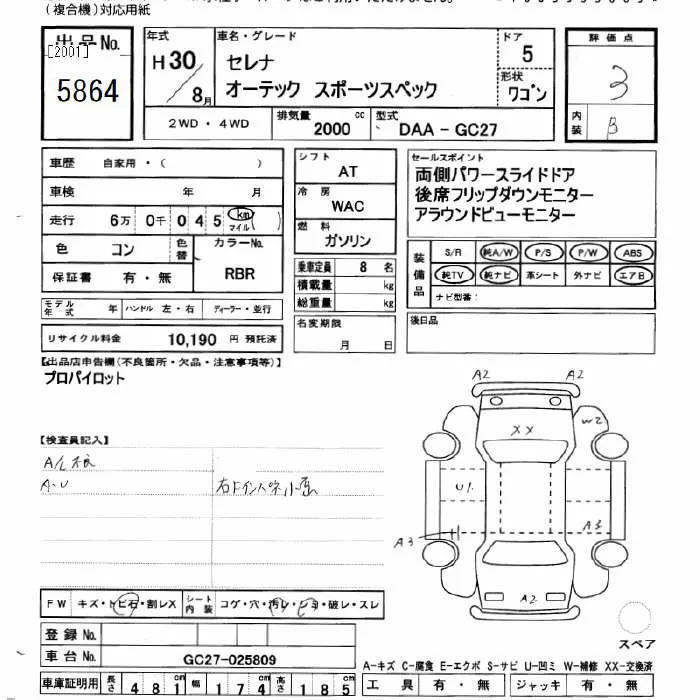 (複合機)対応用紙
出品No.
[2001]
5864
年式
H30/8月
車名・グレード
セレナ
オーテック スポーツスペック
ドア
5
形状
ワゴン
評価点
3
内装
B
2WD・4WD
排気量
2000 cc
型式
DAA-GC27
車歴 自家用・( )
車検 年 月
走行 6万 0千 0 4 5 km マイル ( )
色 コン 色替
カラーNo.
RBR
保証書 有・無
モデル年式 年 ハンドル 左・右 ディーラー・並行
リサイクル料金 10,190 円 預託済
シフト
AT
冷房
WAC
燃料
ガソリン
乗車定員 8 名
積載量 kg
総重量 kg
名変期限
月 日
セールスポイント
両側パワースライドドア
後席フリップダウンモニター
アラウンドビューモニター
装備品
S/R 純A/W P/S P/W ABS
純TV 純ナビ 革シート 外ナビ エアB
ナビ型番:
後日品
【出品店申告欄(不良箇所・欠品・注意事項等)】
プロパイロット
【検査員記入】
A-U
A2 A2
XX
W2
U1
A3
A3
A2
スペア
FW キズ・トビ石・割レX
シート内装 コゲ・穴・汚レ・シミ・破レ・スレ
登録No.
車台No. GC27-025809
車庫証明用 長さ 481cm 幅 174cm 高さ 185cm
A-キズ C-腐食 E-エクボ S-サビ U-凹ミ W-補修 XX-交換済
工具 有・無 ジャッキ 有・無